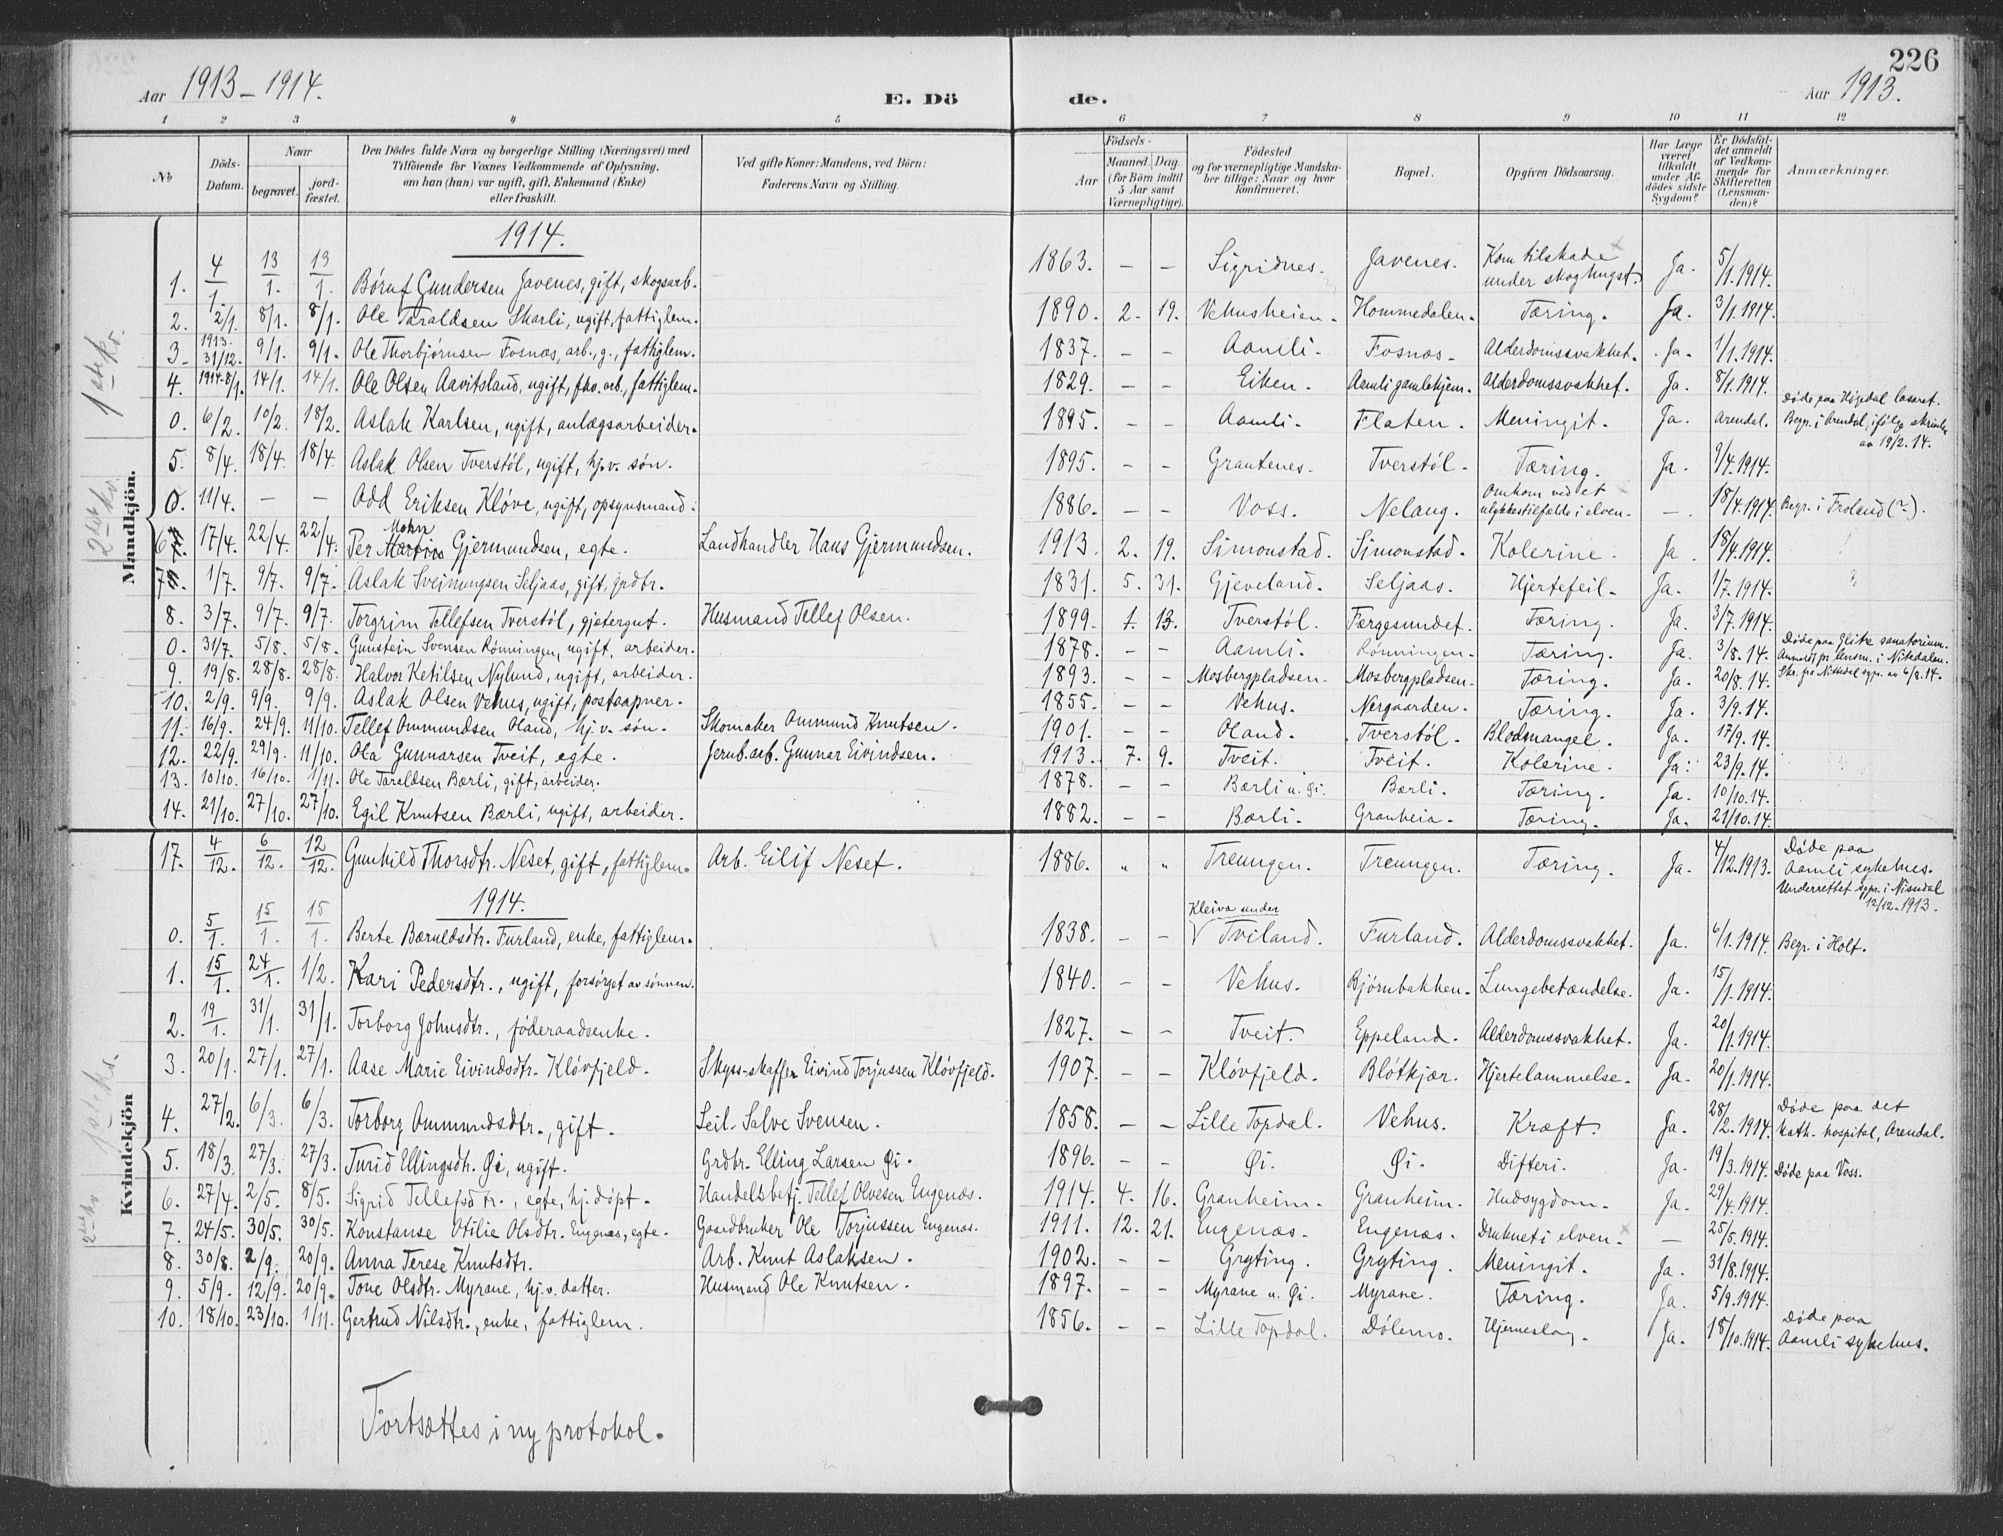 226
Aar 1913-1914.
E. Dö
de.
Aar 1913.
1 2 3 4 5 6 7 8 9 10 11 12
No.
Döds-Datum.
Naar
begravet.
jordfæstet.
Den Dödes fulde Navn og borgerlige Stilling (Næringsvei) med
Tilföiende for Voxnes Vedkommende af Oplysning,
om han (hun) var ugift, gift, Enkemand (Enke)
eller fraskilt.
Ved gifte Koner: Mandens, ved Börn:
Faderens Navn og Stilling.
Födsels-
Aar
Maaned. Dag.
(for Börn indtil
5 Aar samt
Værnepligtige).
Födested
og for værnepligtige Mandskaber tillige: Naar og hvor
Konfirmeret.
Bopæl.
Opgiven Dödsaarsag.
Har Læge
været
tilkaldt
under Afdödes sidste
Sygdom?
Er Dödsfaldet anmeldt
af Vedkommende for
Skifteretten
(Lensmanden)?
Anmærkninger.
Mandkjön.
1ste kv.
2det kv.
1914.
1. 4/1. 13/1. 13/1. Børuf Gundersen Javenes, gift, skogsarb. 1863. – – Sigridnes. Javenes. Kom tilskade under skoghugst. Ja. 5/1.1914.
2. 2/1. 8/1. 8/1. Ole Taraldsen Skarli, ugift, fattiglem. 1890. 2. 19. Vehusheien. Hommedalen. Tæring. Ja. 3/1.1914.
3. 1913. 31/12. 9/1. 9/1. Ole Thorbjørnsen Fosnæs, arb., g., fattiglem. 1837. – – Aamli. Fosnæs. Alderdomssvakhet. Ja. 1/1.1914.
4. 1914. 8/1. 14/1. 14/1. Ole Olsen Aavitsland, ugift, fhv. arb., fattiglem. 1829. – – Eiken. Aamli gamlehjem. Alderdomssvakhet. Ja. 8/1.1914.
0. 6/2. 10/2. 18/2. Aslak Karlsen, ugift, anlægsarbeider. 1895. – – Aamli. Flaten. Meningit. Ja. Arendal. Døde paa Høgedal lasaret. Begr. i Arendal, ifølge skrivelse av 19/2.14.
5. 8/4. 18/4. 18/4. Aslak Olsen Tverstöl, ugift, hj.v. søn. 1895. – – Grautenes. Tverstöl. Tæring. Ja. 9/4.1914.
0. 11/4. – – Odd Eriksen Kløve, ugift, opsynsmand. 1886. – – Voss. Nelaug. Omkom ved et ulykkestilfælde i elven. – 18/4.1914. Begr. i Froland (?).
6. 17/4. 22/4. 22/4. Per Mohn Gjermundsen, egte. Landhandler Hans Gjermundsen. 1913. 2. 19. Simonstad. Simonstad. Kolerine. Ja. 18/4.1914.
7. 1/7. 9/7. 9/7. Aslak Sveinungsen Seljaas, gift, grdbr. 1831. 5. 31. Gjeveland. Seljaas. Hjertefeil. Ja. 1/7.1914.
8. 3/7. 9/7. 9/7. Torgrim Tellefsen Tverstöl, gjætergut. Husmand Tellef Olsen. 1899. 1. 13. Tverstöl. Færgesundet. Tæring. Ja. 3/7.1914.
0. 31/7. 5/8. 5/8. Gunstein Svensen Rönningen, ugift, arbeider. 1878. – – Aamli. Rönningen. Tæring. Ja. 3/8.14. Døde paa Glitre sanatorium. Anmeldt pr. lensm. i Nittedalen. Skr. fra Nittedal sgpr. av 6/8.14.
9. 19/8. 28/8. 28/8. Halvor Ketilsen Nylund, ugift, arbeider. 1893. – – Mosbergpladsen. Mosbergpladsen. Tæring. Ja. 20/8.14.
10. 2/9. 9/9. 9/9. Aslak Olsen Vehus, ugift, postaapner. 1855. – – Vehus. Nergaarden. Tæring. Ja. 3/9.14.
11. 16/9. 24/9. 11/10. Tellef Ommundsen Oland, hj.v. søn. Skomaker Ommund Knutsen. 1901. – – Oland. Tverstöl. Blodmangel. Ja. 17/9.14.
12. 22/9. 29/9. 11/10. Ola Gunnarsen Tveit, egte. Jernb.arb. Gunnar Eivindsen. 1913. 7. 9. Tveit. Tveit. Kolerine. Ja. 23/9.14.
13. 10/10. 16/10. 1/11. Ole Taraldsen Bærli, gift, arbeider. 1878. – – Bærli u. Øi. Bærli. Tæring. Ja. 10/10.14.
14. 21/10. 27/10. 27/10. Egil Knutsen Bærli, ugift, arbeider. 1882. – – Bærli. Granheia. Tæring. Ja. 21/10.14.
Kvindekjön
1ste kv.
2det kv
17. 4/12. 6/12. 12/12. Gunhild Thorsdtr. Neset, gift, fattiglem. Arb. Eilif Neset. 1886. " " Treungen. Treungen. Tæring. Ja. 4/12.1913. Døde paa Aamli sykehus. Underrettet sgpr. i Nissedal 12/12.1913.
1914.
0. 5/1. 15/1. 15/1. Berte Bæruldsdtr. Furland, enke, fattiglem. 1838. – – Kleiva under Tviland. Furland. Alderdomssvakhet. Ja. 6/1.1914. Begr. i Holt.
1. 15/1. 24/1. 1/2. Kari Pedersdtr., ugift, forsørget av sønnen. 1840. – – Vehus. Bjørnbakken. Lungebetændelse. Ja. 15/1.1914.
2. 19/1. 31/1. 31/1. Torborg Johnsdtr., føderaadsenke. 1827. – – Tveit. Eppeland. Alderdomssvakhet. Ja. 20/1.1914.
3. 20/1. 27/1. 27/1. Aase Marie Eivindsdtr. Kløvfjeld. Skyss-skaffer Eivind Torjussen Kløvfjeld. 1907. – – Kløvfjeld. Bløtkjær. Hjertelammelse. Ja. 20/1.1914.
4. 27/2. 6/3. 6/3. Torborg Ommundsdtr., gift. Leil. Salve Svensen. 1858. – – Lille Topdal. Vehus. Kræft. Ja. 28/2.1914. Døde paa det kath. hospital, Arendal.
5. 18/3. 27/3. 27/3. Turid Ellingsdtr. Øi, ugift. Grdbr. Elling Larsen Øi. 1896. – – Øi. Øi. Difteri. Ja. 19/3.1914. Døde paa Voss.
6. 27/4. 2/5. 8/5. Sigrid Tellefsdtr., egte, hj.døpt. Handelsbetj. Tellef Olvesen Engenæs. 1914. 4. 16. Granheim. Granheim. Hudsygdom. Ja. 29/4.1914.
7. 24/5. 30/5. 30/5. Konstanse Otilie Olsdtr. Engenæs, egte. Gaardbruker Ole Torjussen Engenæs. 1911. 12. 21. Engenæs. Engenæs. Druknet i elven. – 25/5.1914.
8. 30/8. 2/9. 20/9. Anna Terese Knutsdtr. Arb. Knut Aslaksen. 1902. – – Gryting. Gryting. Meningit. Ja. 31/8.1914.
9. 5/9. 12/9. 20/9. Tone Olsdtr. Myrane, hj.v. datter. Husmand Ole Knutsen. 1897. – – Myrane u. Øi. Myrane. Tæring. Ja. 5/9.1914.
10. 18/10. 23/10. 1/11. Gertrud Nilsdtr., enke, fattiglem. 1856. – – Lille Topdal. Dølemo. Hjerneslag. Ja. 18/10.1914. Døde paa Aamli sykehus.
Fortsættes i ny protokol.